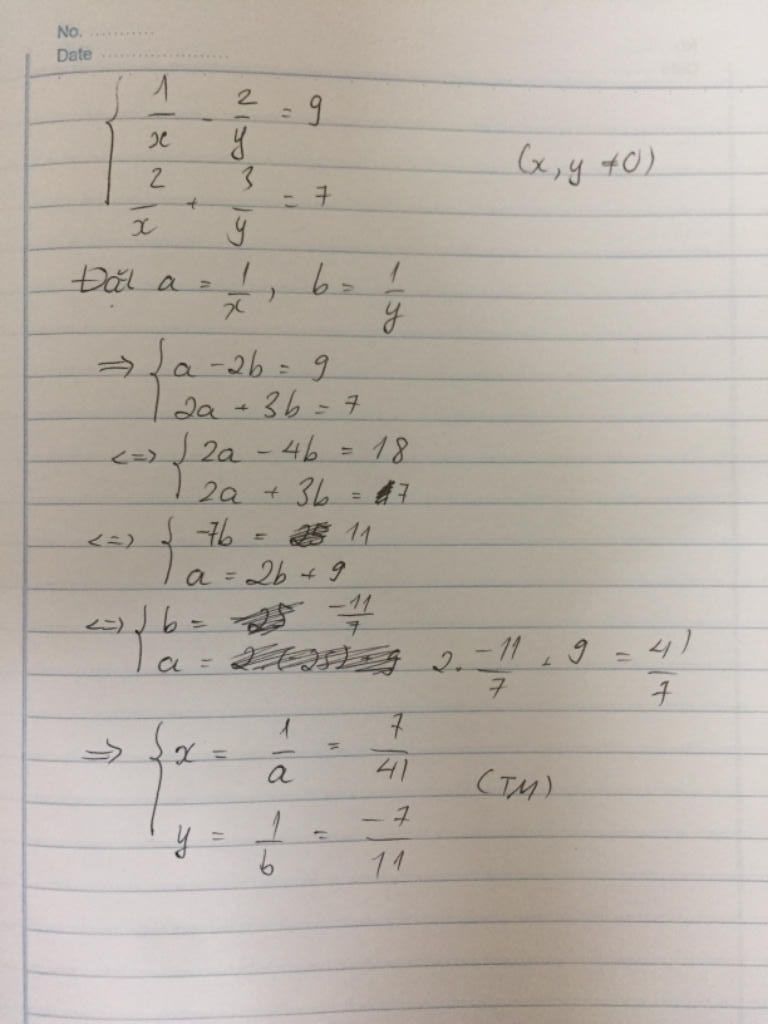 No. ............
Date ........................
{ 1/x - 2/y = 9
(x, y ≠ 0)
2/x + 3/y = 7
Đặt a = 1/x, b = 1/y
=> { a - 2b = 9
2a + 3b = 7
<=> { 2a - 4b = 18
2a + 3b = 7
<=> { -7b = 11
a = 2b + 9
<=> { b = -11/7
a = 2. -11/7 + 9 = 41/7
=> { x = 1/a = 7/41
(TM)
y = 1/b = -7/11